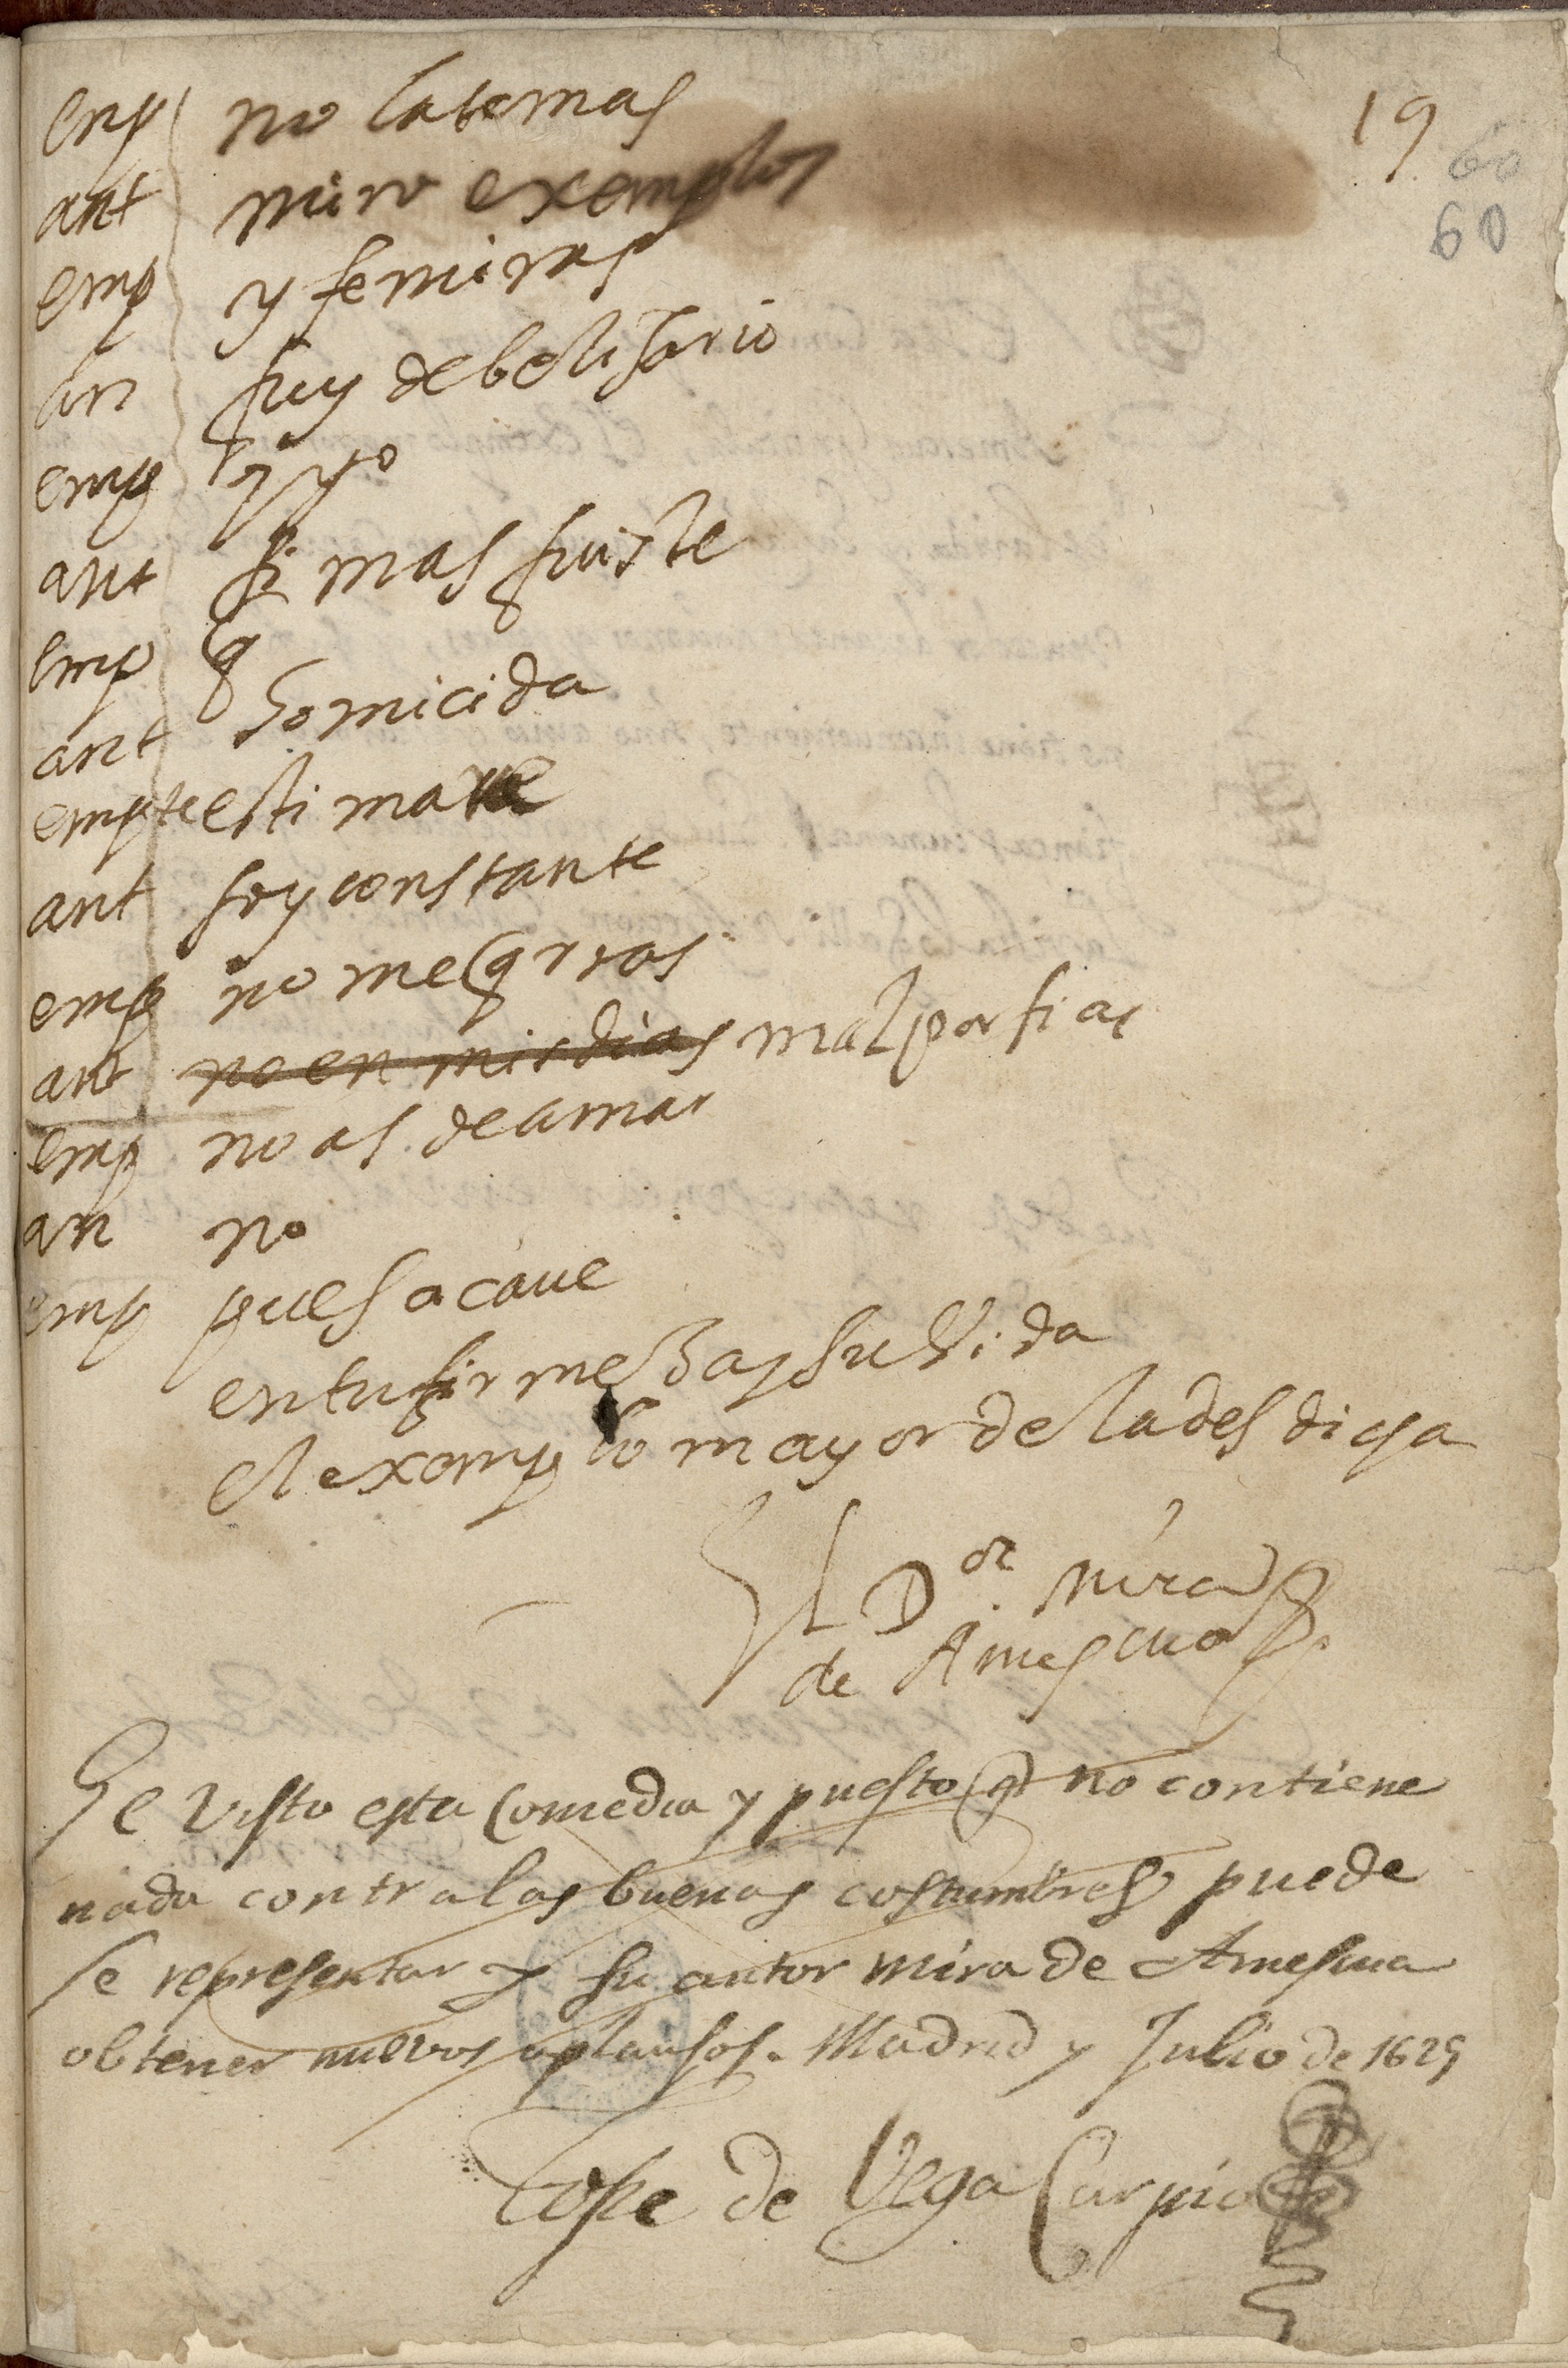 19
60
60
emp no la temas
ant miro exemplos
emp y se miras
an fuy de belisario
emp y yo
ant si mas fuiste
emp q
ant homicida
emp te estimare
ant soy constante
emp no me qrras
ant no en mis dias mal porfias
emp no as de amar
an no
emp pues acaue
en tu firmeza y su vida
el exemplo mayor de la desdicha
El Dor. Mira
de Amescua
He visto esta comedia y puesto q no contiene
nada contra las buenas costumbres puede
se representar y su autor Mira de Amescua
obtener nuevos aplausos. Madrid y Julio de 1625
Lope de Vega Carpio